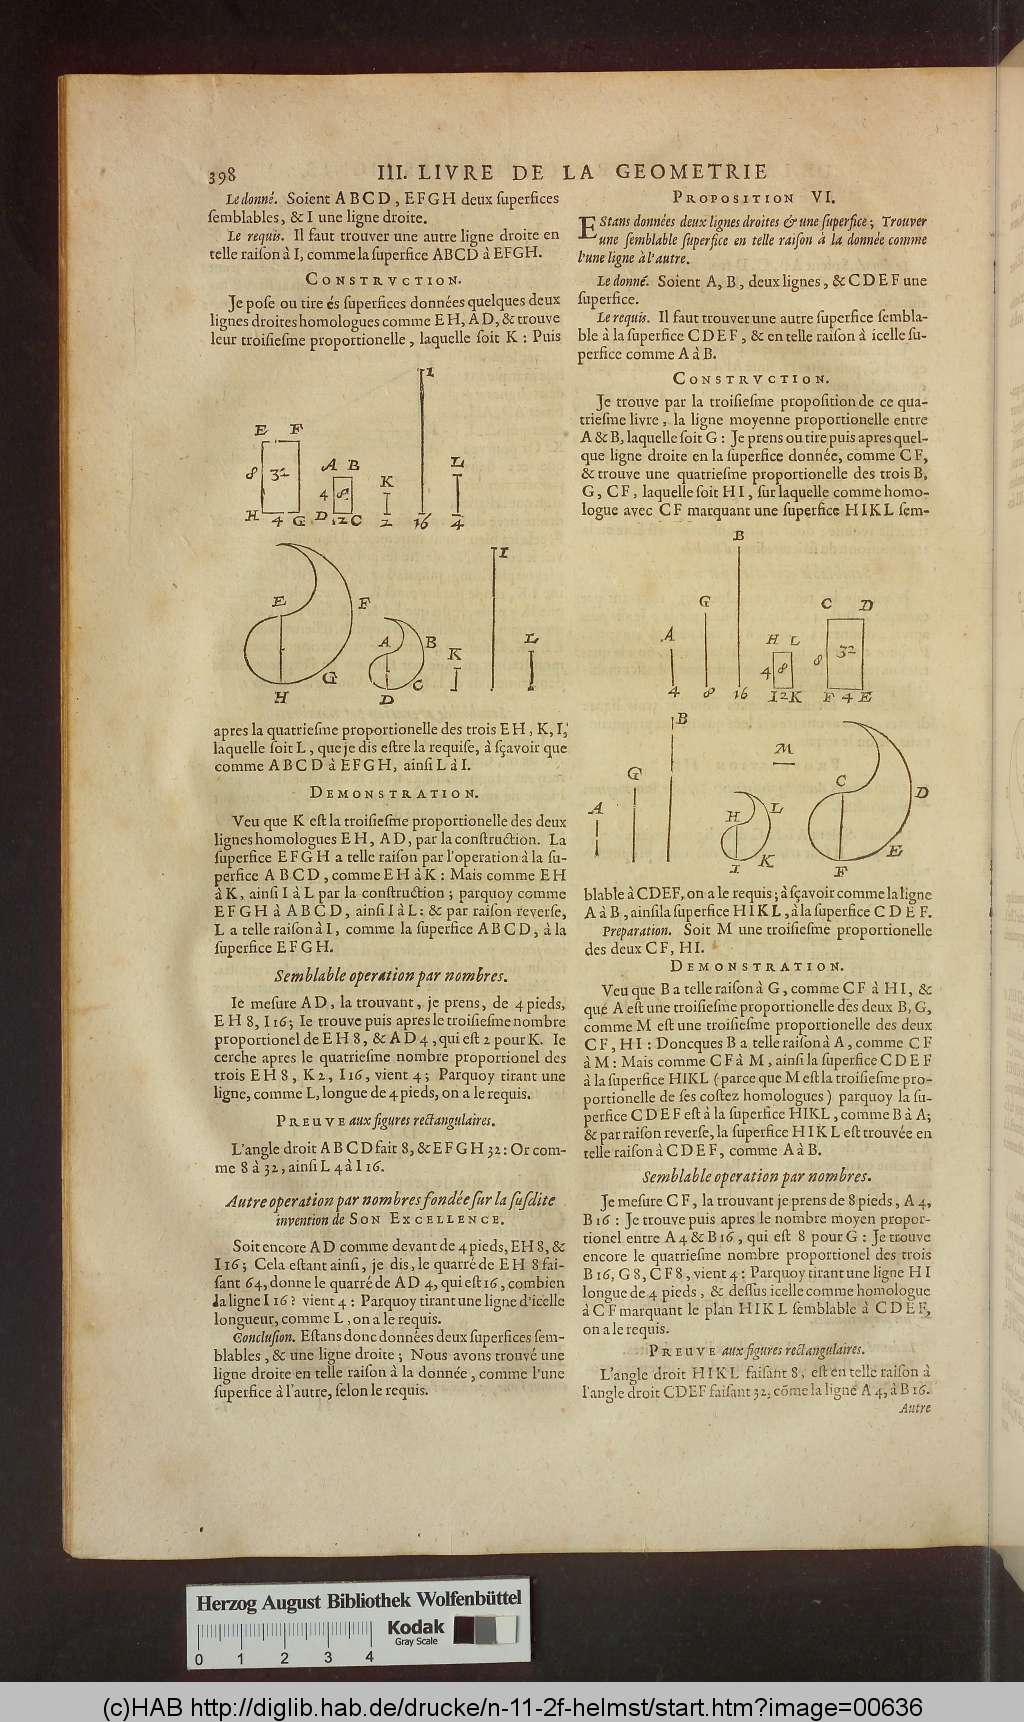 398
III. LIVRE DE LA GEOMETRIE
Le donné. Soient A B C D, E F G H deux ſuperfices
ſemblables, & I une ligne droite.
Le requis. Il faut trouver une autre ligne droite en
telle raiſon à I, comme la ſuperfice ABCD à EFGH.
CONSTRVCTION.
Je poſe ou tire és ſuperfices données quelques deux
lignes droites homologues comme E H, A D, & trouve
leur troiſieſme proportionelle, laquelle ſoit K : Puis
I
E F
8 32
H 4 G
A B
4 8
D 12 C
K
2
16
L
4
E
F
G
H
A
B
C
D
K
I
L
apres la quatrieſme proportionelle des trois E H, K, I,
laquelle ſoit L, que je dis eſtre la requiſe, à ſçavoir que
comme A B C D à E F G H, ainſi L à I.
DEMONSTRATION.
Veu que K eſt la troiſieſme proportionelle des deux
lignes homologues E H, A D, par la conſtruction. La
ſuperfice E F G H a telle raiſon par l'operation à la ſu-
perfice A B C D, comme E H à K : Mais comme E H
à K, ainſi I à L par la conſtruction ; parquoy comme
E F G H à A B C D, ainſi I à L : & par raiſon reverſe,
L a telle raiſon à I, comme la ſuperfice A B C D, à la
ſuperfice E F G H.
Semblable operation par nombres.
Ie meſure A D, la trouvant, je prens, de 4 pieds,
E H 8, I 16; Ie trouve puis apres le troiſieſme nombre
proportionel de E H 8, & A D 4, qui eſt 2 pour K. Ie
cerche apres le quatrieſme nombre proportionel des
trois E H 8, K 2, I 16, vient 4; Parquoy tirant une
ligne, comme L, longue de 4 pieds, on a le requis.
PREUVE aux figures rectangulaires.
L'angle droit A B C D fait 8, & E F G H 32 : Or com-
me 8 à 32, ainſi L 4 à I 16.
Autre operation par nombres fondée ſur la ſuſdite
invention de SON EXCELLENCE.
Soit encore A D comme devant de 4 pieds, E H 8, &
I 16; Cela eſtant ainſi, je dis, le quarré de E H 8 fai-
ſant 64, donne le quarré de A D 4, qui eſt 16, combien
la ligne I 16 ? vient 4 : Parquoy tirant une ligne d'icelle
longueur, comme L, on a le requis.
Concluſion. Eſtans donc données deux ſuperfices ſem-
blables, & une ligne droite ; Nous avons trouvé une
ligne droite en telle raiſon à la donnée, comme l'une
ſuperfice à l'autre, ſelon le requis.
PROPOSITION VI.
EStans données deux lignes droites & une ſuperfice ; Trouver
une ſemblable ſuperfice en telle raiſon à la donnée comme
l'une ligne à l'autre.
Le donné. Soient A, B, deux lignes, & C D E F une
ſuperfice.
Le requis. Il faut trouver une autre ſuperfice ſembla-
ble à la ſuperfice C D E F, & en telle raiſon à icelle ſu-
perfice comme A à B.
CONSTRVCTION.
Je trouve par la troiſieſme propoſition de ce qua-
trieſme livre, la ligne moyenne proportionelle entre
A & B, laquelle ſoit G : Je prens ou tire puis apres quel-
que ligne droite en la ſuperfice donnée, comme C F,
& trouve une quatrieſme proportionelle des trois B,
G, C F, laquelle ſoit H I, ſur laquelle comme homo-
logue avec C F marquant une ſuperfice H I K L ſem-
B
G
A
4 8 16
H L
4 8
I 2 K
C D
8 32
F 4 E
B
G
A
M
H
L
I
K
C
D
E
F
blable à CDEF, on a le requis ; à ſçavoir comme la ligne
A à B, ainſi la ſuperfice H I K L, à la ſuperfice C D E F.
Preparation. Soit M une troiſieſme proportionelle
des deux C F, H I.
DEMONSTRATION.
Veu que B a telle raiſon à G, comme C F à H I, &
que A eſt une troiſieſme proportionelle des deux B, G,
comme M eſt une troiſieſme proportionelle des deux
C F, H I : Doncques B a telle raiſon à A, comme C F
à M : Mais comme C F à M, ainſi la ſuperfice C D E F
à la ſuperfice HIKL (parce que M eſt la troiſieſme pro-
portionelle de ſes coſtez homologues) parquoy la ſu-
perfice C D E F eſt à la ſuperfice HIKL, comme B à A;
& par raiſon reverſe, la ſuperfice H I K L eſt trouvée en
telle raiſon à C D E F, comme A à B.
Semblable operation par nombres.
Je meſure C F, la trouvant je prens de 8 pieds, A 4,
B 16 : Je trouve puis apres le nombre moyen propor-
tionel entre A 4 & B 16, qui eſt 8 pour G : Je trouve
encore le quatrieſme nombre proportionel des trois
B 16, G 8, C F 8, vient 4 : Parquoy tirant une ligne H I
longue de 4 pieds, & deſſus icelle comme homologue
à C F marquant le plan H I K L ſemblable à C D E F,
on a le requis.
PREUVE aux figures rectangulaires.
L'angle droit H I K L faiſant 8, eſt en telle raiſon à
l'angle droit CDEF faiſant 32, cõme la ligne A 4, à B 16.
Autre
Herzog August Bibliothek Wolfenbüttel
Kodak
Gray Scale
0 1 2 3 4
(c)HAB http://diglib.hab.de/drucke/n-11-2f-helmst/start.htm?image=00636